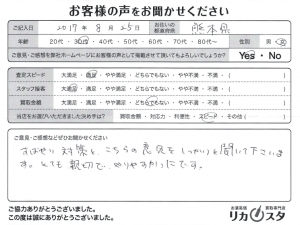 お客様の声をお聞かせください
ご記入日 2017年8月25日 お住いの都道府県 熊本県
年齢 20代・30代・40代・50代・60代・70代・80代〜 性別 男・女
ご意見・ご感想を弊社ホームページにお客様の声として掲載させて頂いてもよろしいでしょうか? Yes・No
査定スピード 大満足・満足・やや満足・どちらでもない・やや不満・不満・( )
スタッフ接客 大満足・満足・やや満足・どちらでもない・やや不満・不満・( )
買取金額 大満足・満足・やや満足・どちらでもない・やや不満・不満・( )
当店をお選びいただきました決め手は? 買取金額・対応力・利便性・スピード・その他( )
ご意見・ご感想などぜひお聞かせください
すばやい対応と、こちらの意見をしっかりと聞いて下さいます。とても親切で、やりやすかったです。
ご協力ありがとうございました。
この度は誠にありがとうございました。
お酒高価買取専門店
リカスタ